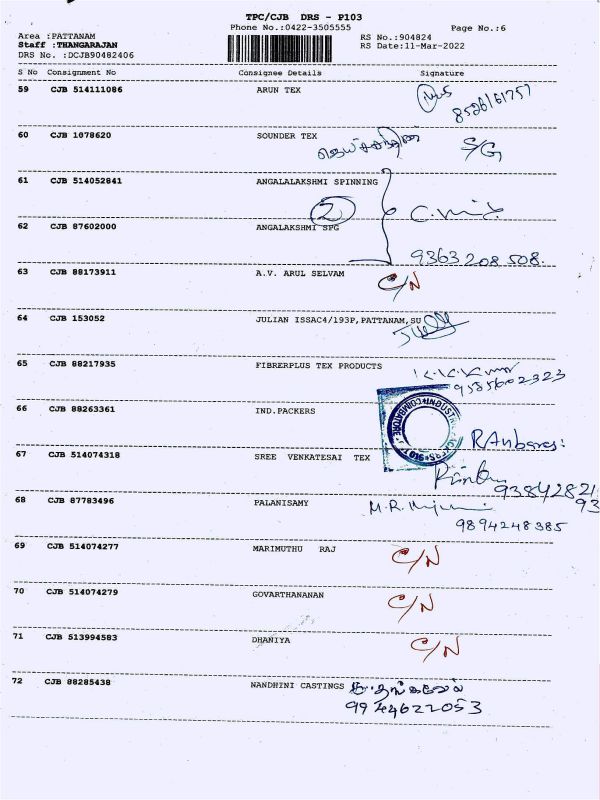 TPC/CJB DRS - P103
Phone No.:0422-3505555
Page No.:6
Area :PATTANAM
RS No.:904824
Staff :THANGARAJAN
RS Date:11-Mar-2022
DRS No. :DCJB90482406
S No Consignment No Consignee Details Signature
59 CJB 514111086 ARUN TEX
8526161757
60 CJB 1078620 SOUNDER TEX
S/G
61 CJB 514052841 ANGALALAKSHMI SPINNING
2
62 CJB 87602000 ANGALAKSHMI SPG
9363 208 508.
63 CJB 88173911 A.V. ARUL SELVAM C/N
64 CJB 153052 JULIAN ISSAC4/193P,PATTANAM,SU
65 CJB 88217935 FIBRERPLUS TEX PRODUCTS
9585602323
66 CJB 88263361 IND.PACKERS
COIMBATORE
67 CJB 514074318 SREE VENKATESAI TEX
93842821
93
68 CJB 87783496 PALANISAMY M.R.
9894248385
69 CJB 514074277 MARIMUTHU RAJ C/N
70 CJB 514074279 GOVARTHANANAN C/N
71 CJB 513994583 DHANIYA C/N
72 CJB 88285438 NANDHINI CASTINGS
9944622053